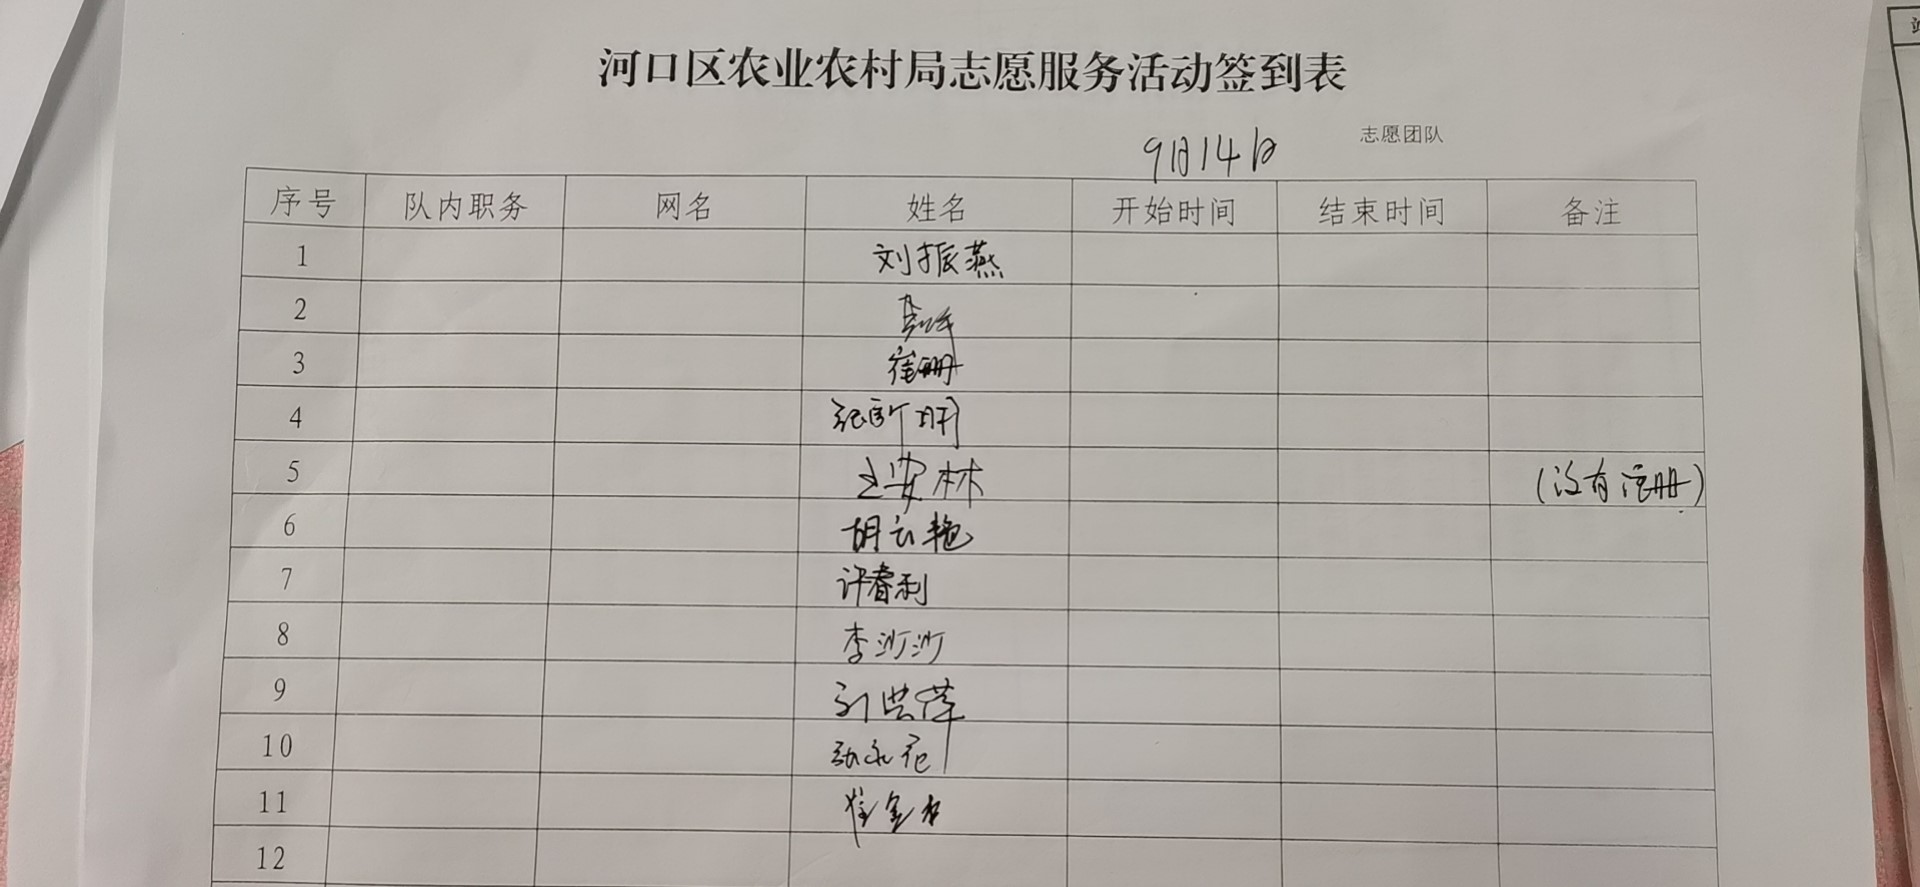 河口区农业农村局志愿服务活动签到表
志愿团队
9月14日
序号 队内职务 网名 姓名 开始时间 结束时间 备注
1 刘振燕
2
3 崔珊
4
5 王安林 (没有注册)
6 胡云艳
7 许春利
8 李沙沙
9 刘洪萍
10
11 崔金
12